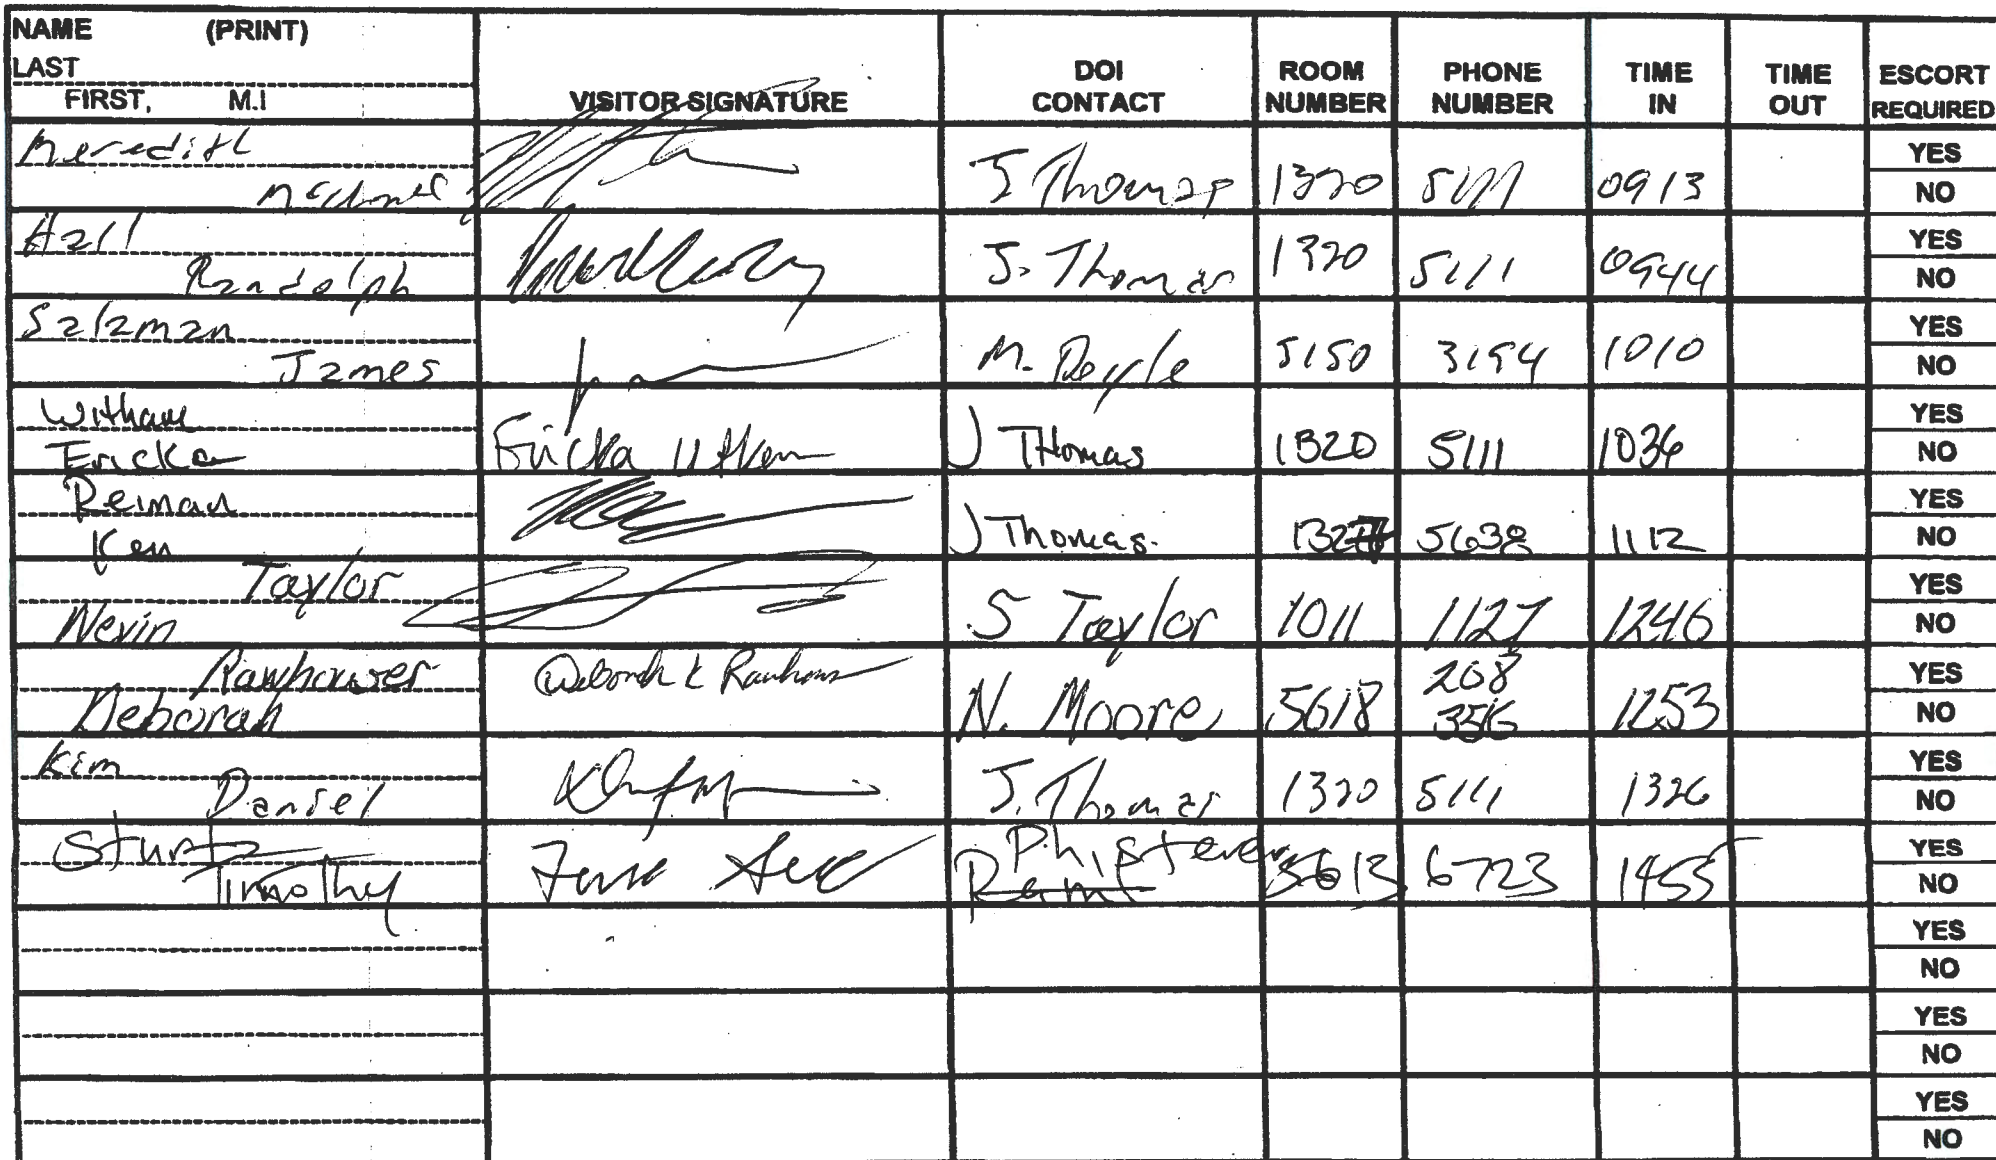 NAME (PRINT)
LAST
FIRST, M.I
VISITOR SIGNATURE
DOI CONTACT
ROOM NUMBER
PHONE NUMBER
TIME IN
TIME OUT
ESCORT REQUIRED
Meredith
J Thomas 1320 5111 0913
YES
NO
Hall
Randolph
J. Thomas 1320 5111 0944
YES
NO
Salzman
James
M. Doyle 5150 3194 1010
YES
NO
Witham
Ericka
Ericka
J THomas 1320 5111 1036
YES
NO
Reiman
Ken
J Thomas. 5638 1112
YES
NO
Taylor
Nevin
S Taylor 1011 1127 1246
YES
NO
Rawhouser
Deborah
Deborah K Rawhouser
N. Moore 5618 208 3516 1253
YES
NO
Kim
Daniel
J. Thomas 1320 5111 1326
YES
NO
Sturtz
Timothy
5613 6723 1455
YES
NO
YES
NO
YES
NO
YES
NO